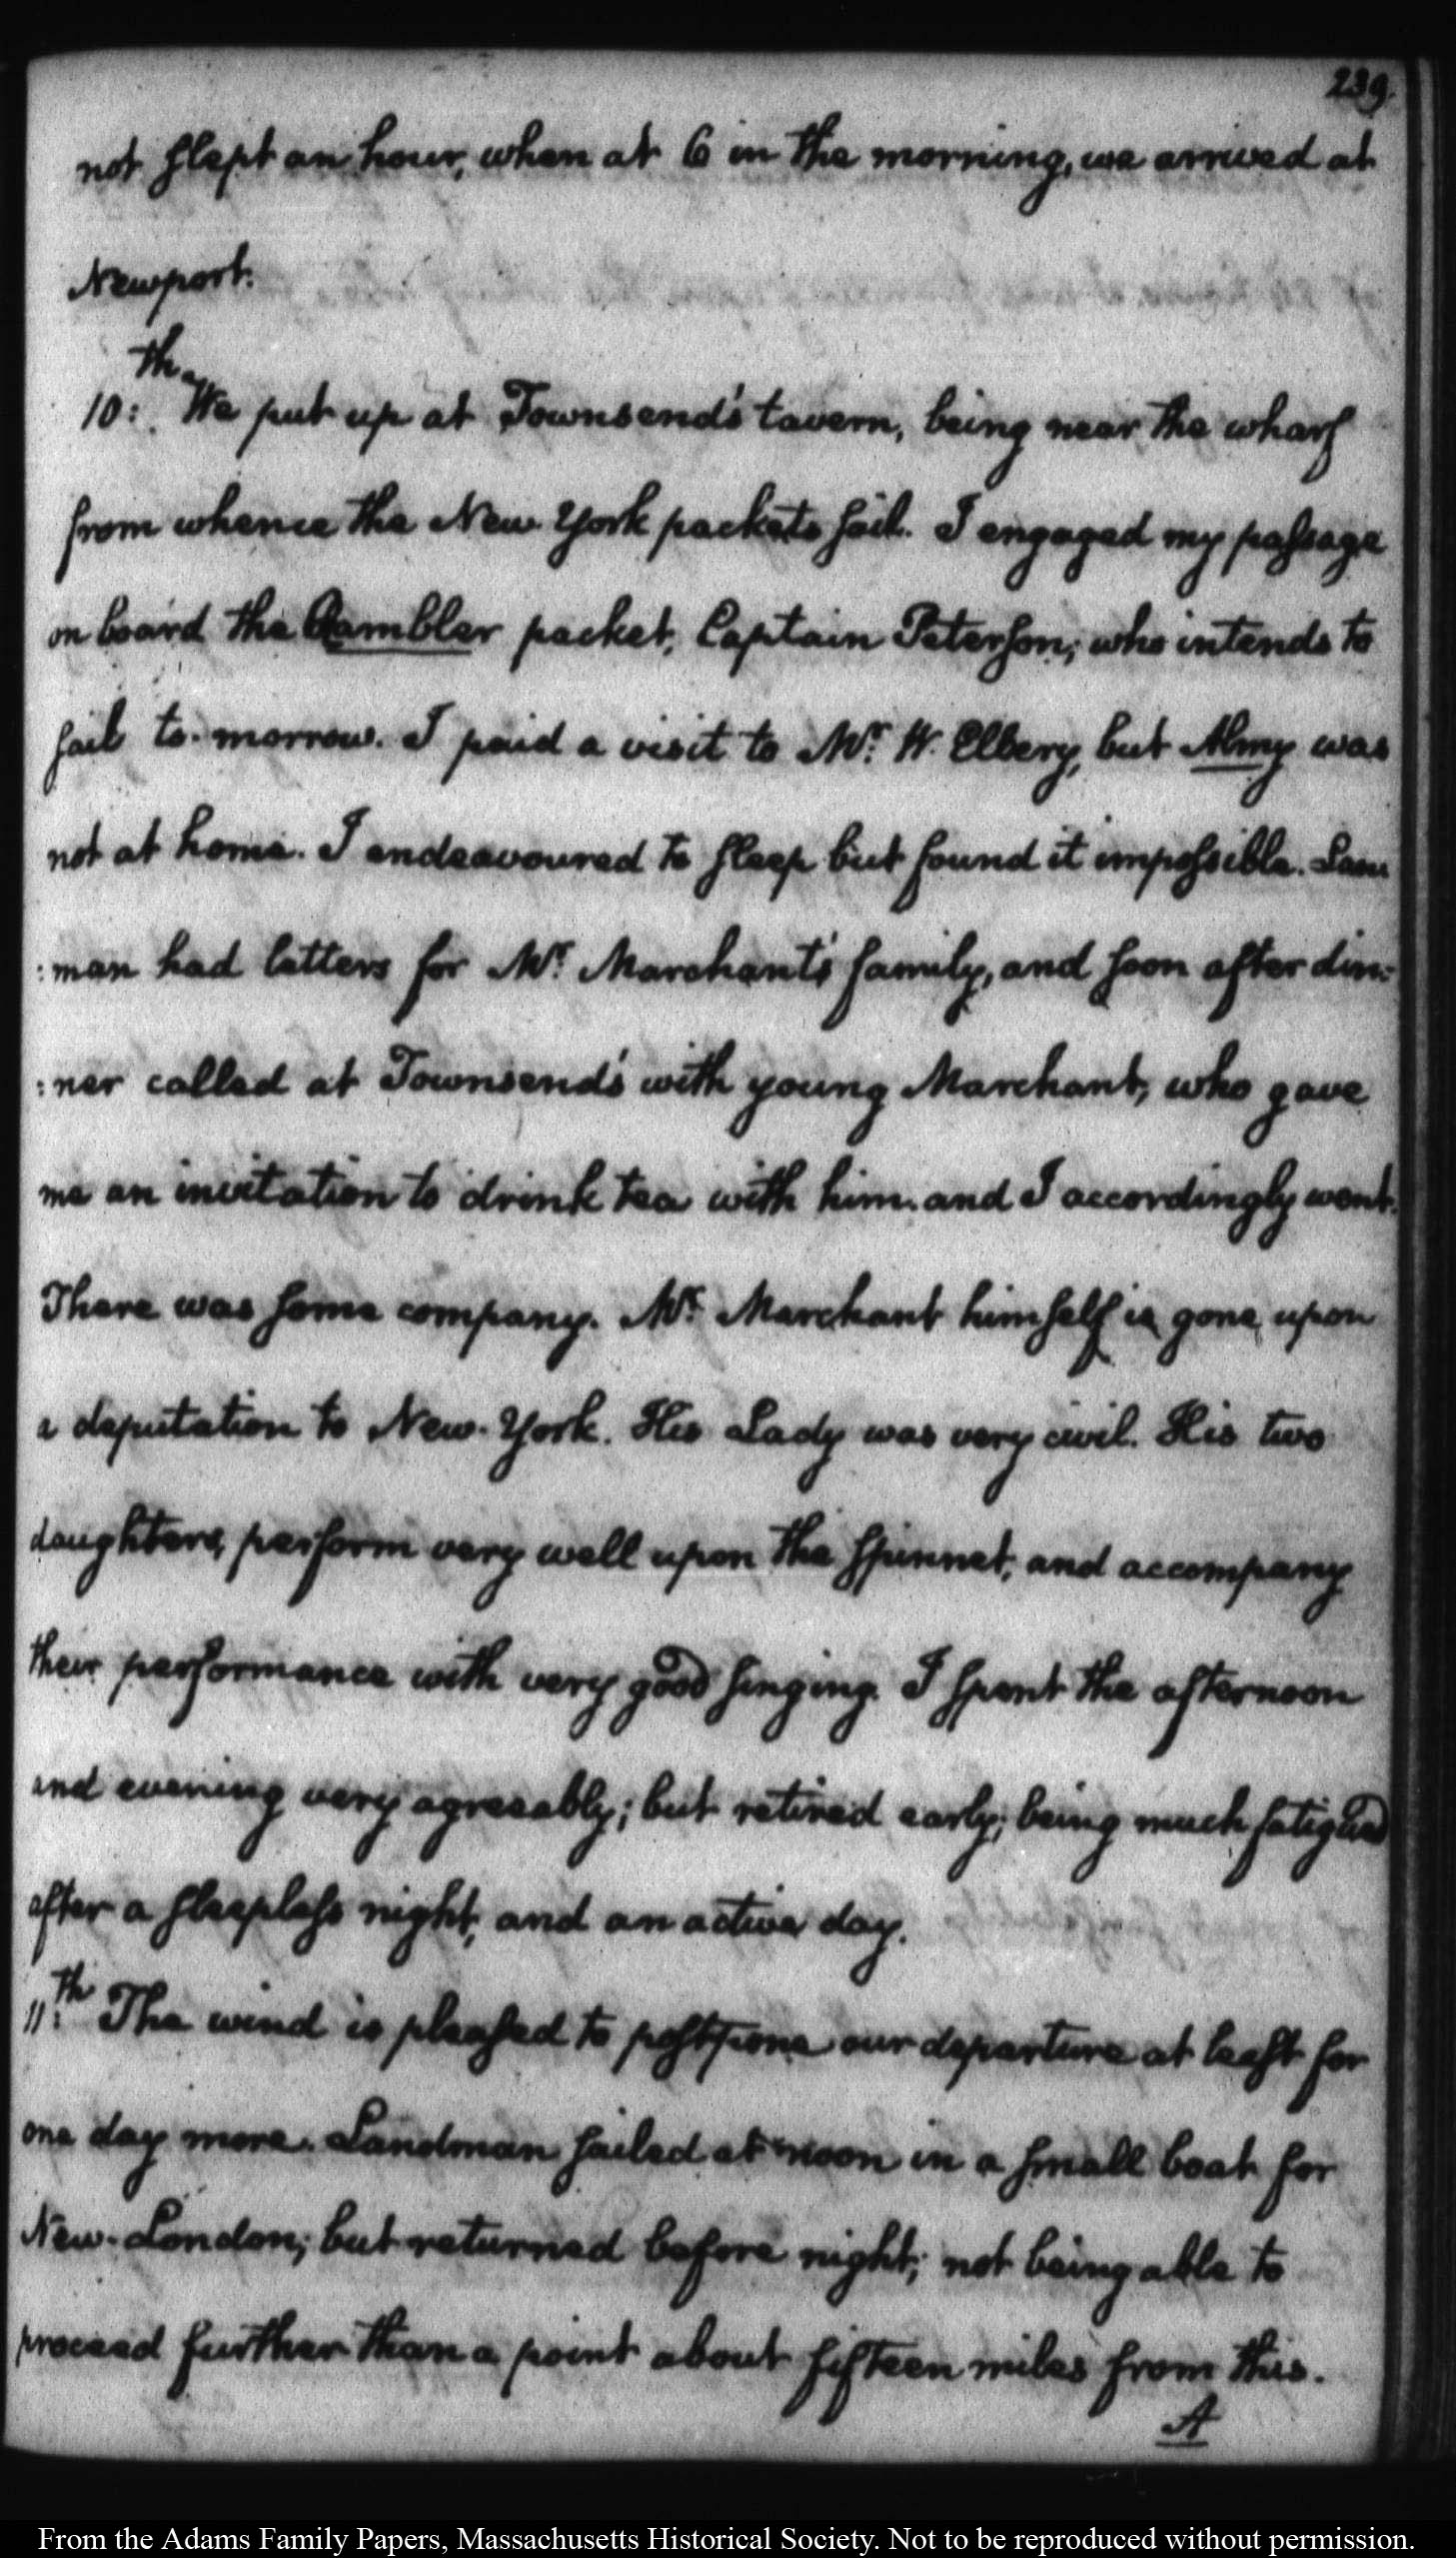 239.
not slept an hour, when at 6 in the morning, we arrived at
Newport.
10:th We put up at Townsend's tavern, being near the wharf
from whence the New York packets sail. I engaged my passage
on board the Rambler packet, Captain Peterson; who intends to
sail to-morrow. I paid a visit to Mr. W. Ellery, but Almy was
not at home. I endeavoured to sleep but found it impossible.
:man had letters for Mr. Marchant's family, and soon after din:
:ner called at Townsend's with young Marchant, who gave
me an invitation to drink tea with him. and I accordingly went.
There was some company. Mr. Marchant himself is gone upon
a deputation to New-York. His Lady was very civil. His two
daughters, perform very well upon the spinnet, and accompany
their performance with very good singing. I spent the afternoon
and evening very agreeably; but retired early; being much fatigued
after a sleepless night, and an active day.
11:th The wind is pleased to postpone our departure at least for
one day more. Landman sailed at noon in a small boat for
New-London; but returned before night; not being able to
proceed further than a point about fifteen miles from this.
A
From the Adams Family Papers, Massachusetts Historical Society. Not to be reproduced without permission.